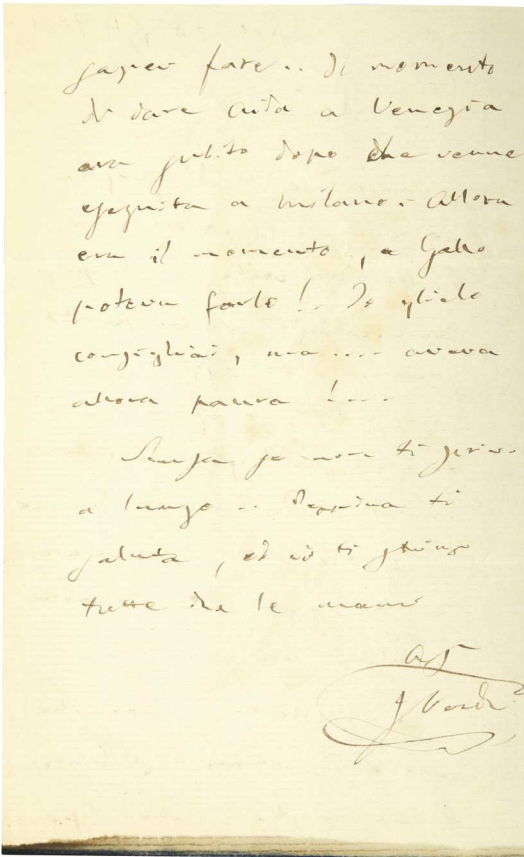 saper fare.. Il momento
di dare Aida a Venezia
era subito dopo che venne
eseguita a Milano. Allora
era il momento, e Gallo
poteva farlo!.. Io glielo
consigliai, ma .... aveva
allora paura!....
Scusa se non ti scrivo
a lungo .. Peppina ti
saluta, ed io ti stringo
tutte due le mani
Aff
G Verdi